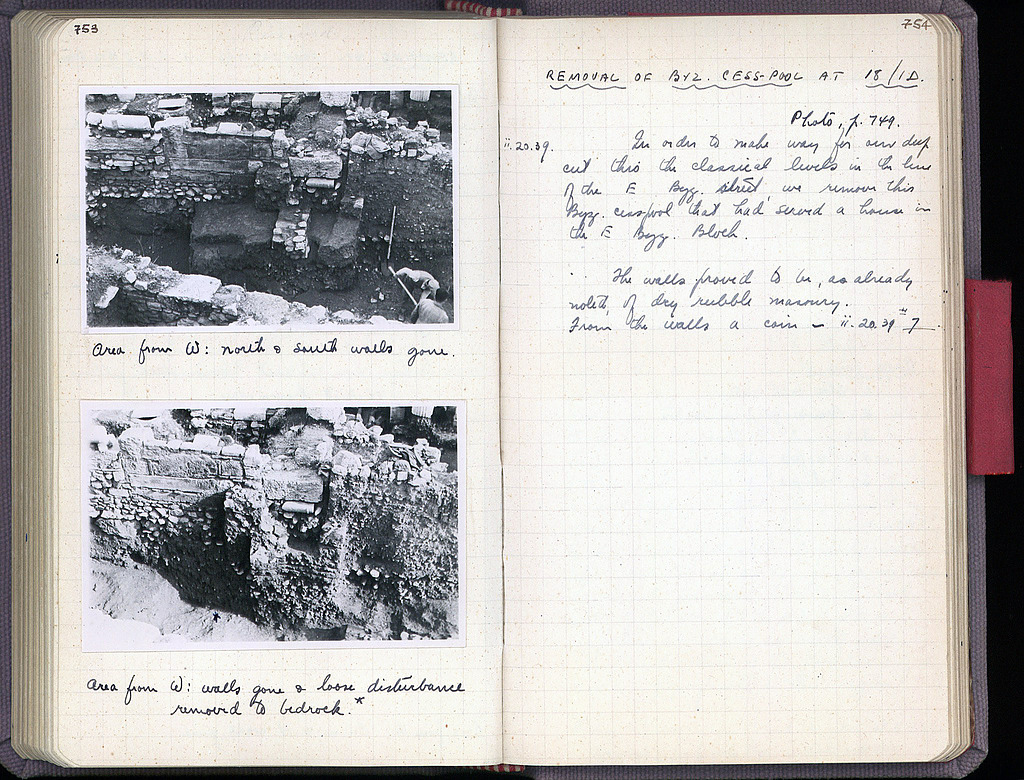 753
Area from W: north & south walls gone.
Area from W: walls gone & loose disturbance
removed to bedrock.*
754
REMOVAL OF BYZ. CESS-POOL AT 18/1D.
Photo, p. 749.
ii.20.39. In order to make way for our deep
cut thro the classical levels in the line
of the E Byz. street we remove this
Byz. cesspool that had served a house in
the E Byz. Block.
The walls proved to be, as already
noted, of dry rubble masonry.
From the walls a coin – ii.20.39 # 7